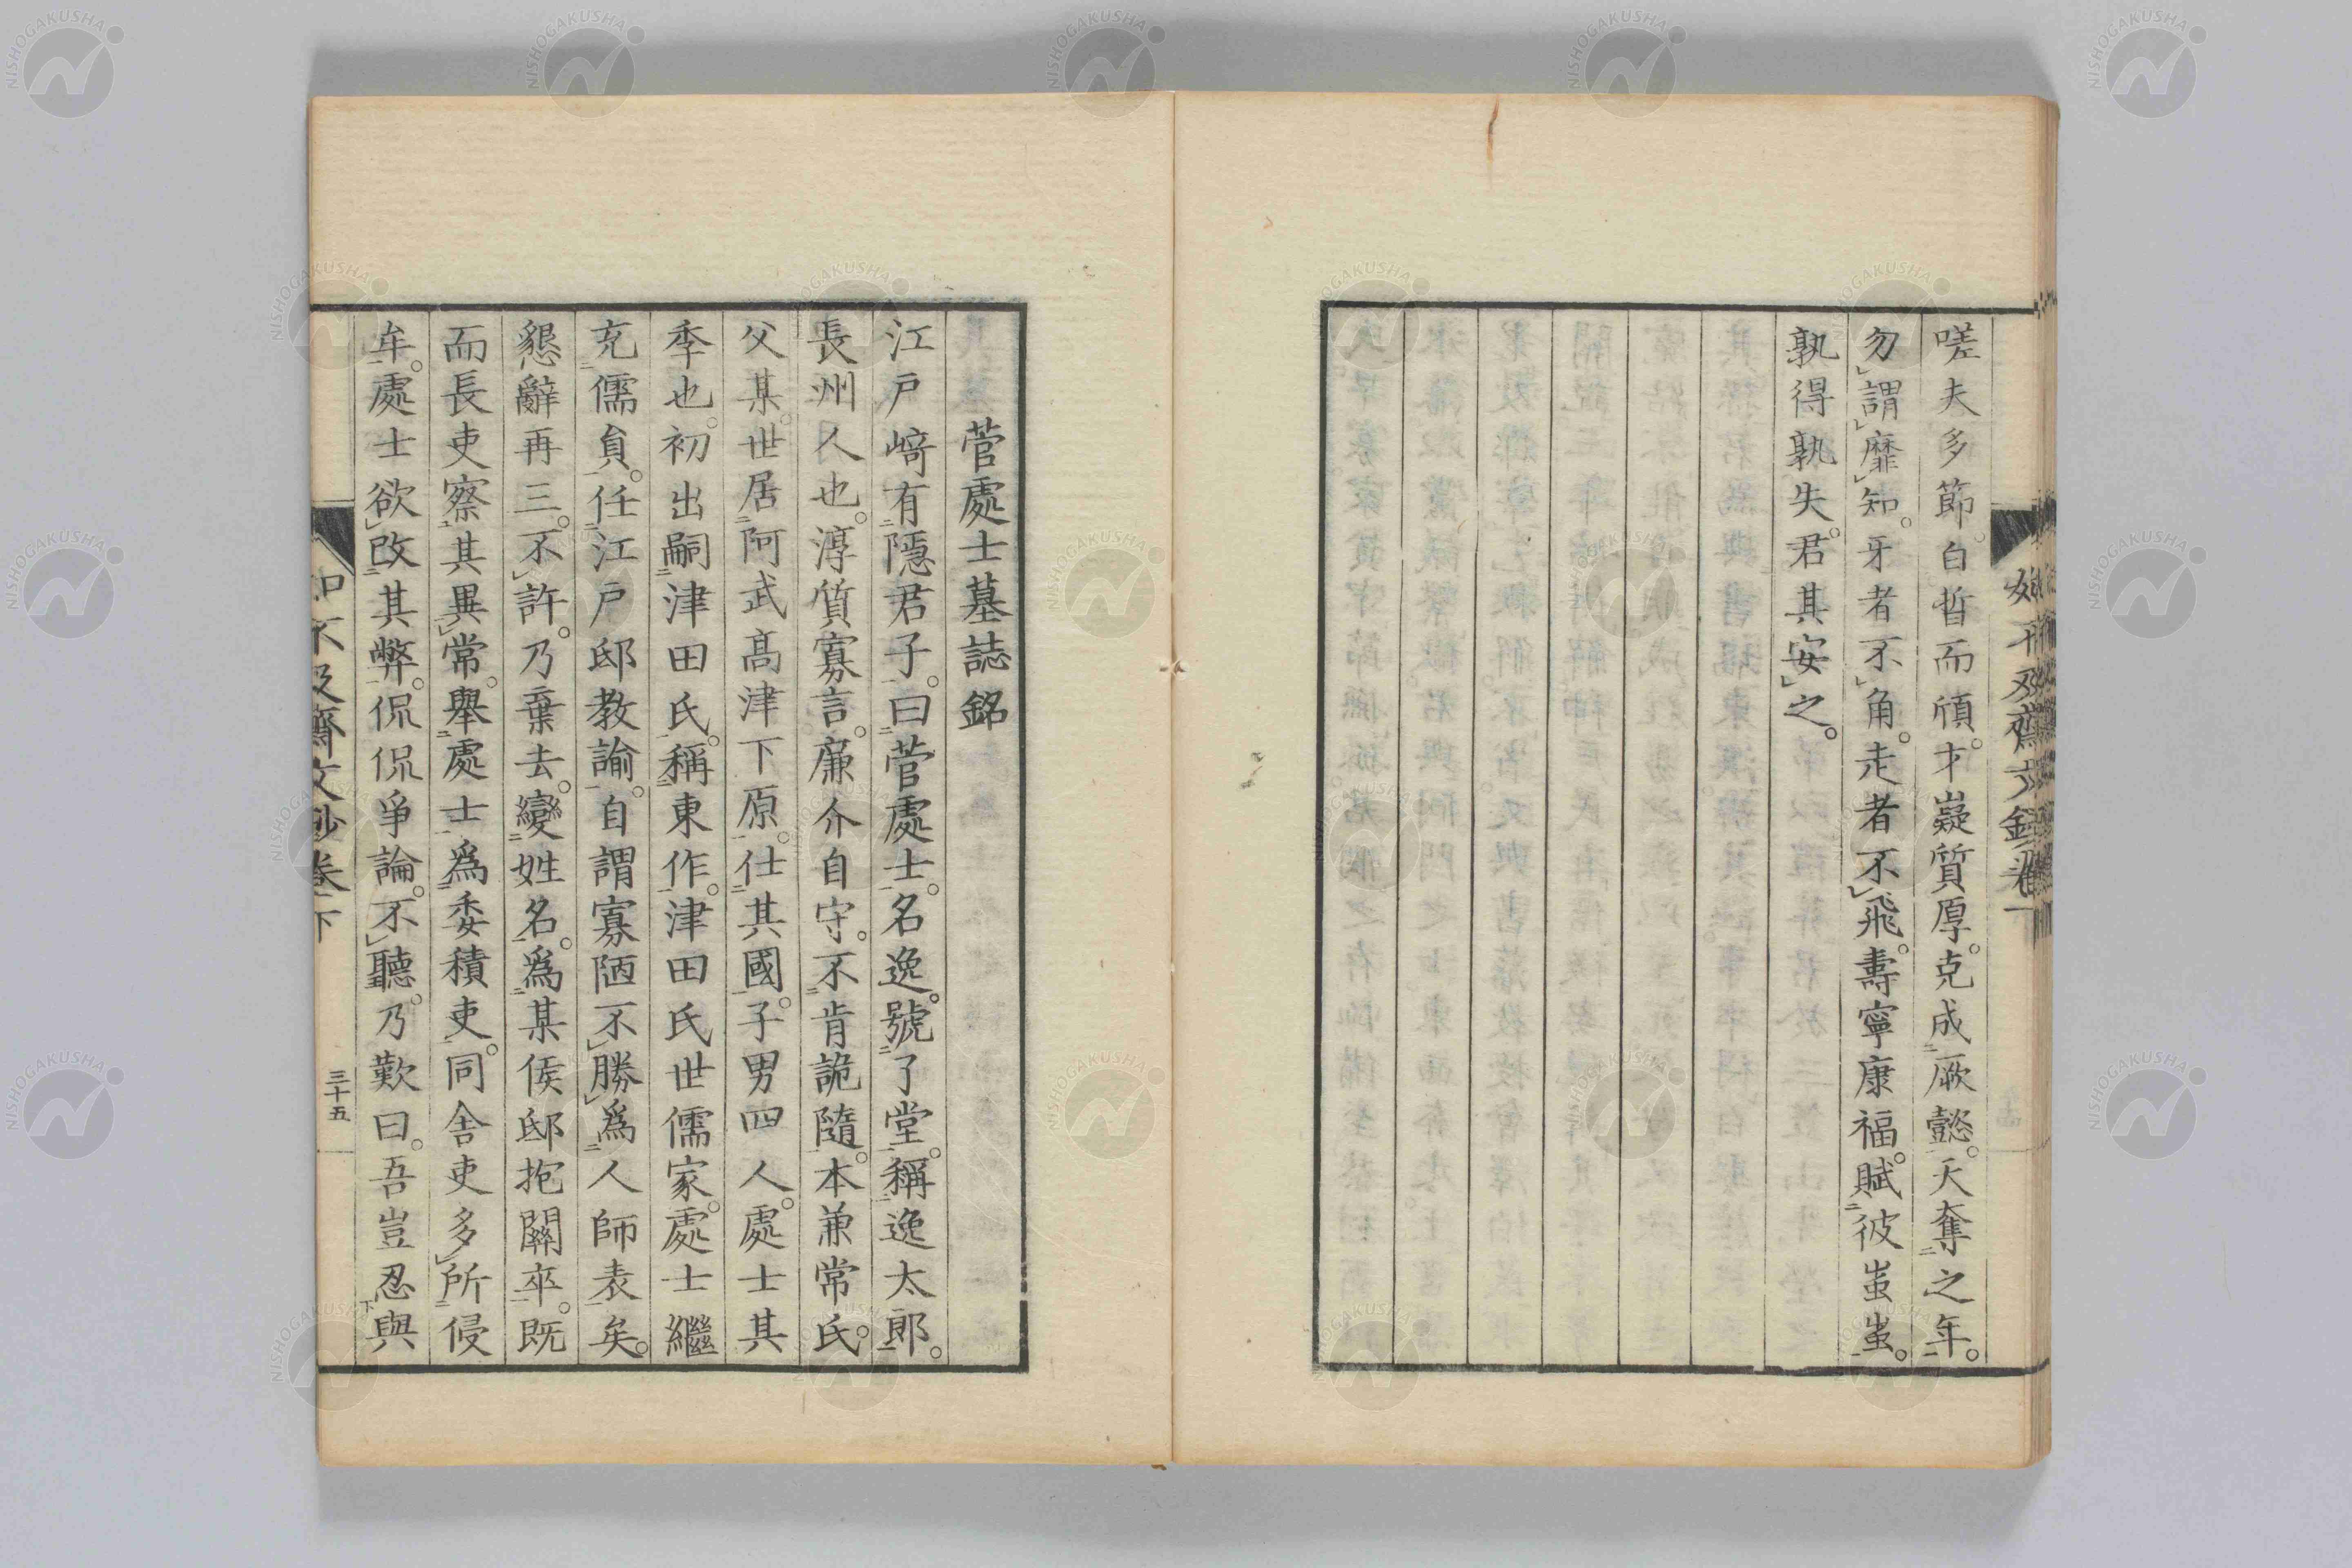 嗟夫多節。白晢而頎。才嶷質厚。克成厥懿。天奪之年。
勿謂靡知。牙者不角。走者不飛。壽寧康福。賦彼蚩蚩。
孰得孰失。君其安之。
菅處士墓誌銘
江戸﨑有隱君子。曰菅處士。名逸。號了堂。稱逸太郎。
長州人也。淳質寡言。廉介自守。不肯詭隨。本兼常氏。
父某。世居阿武高津下原。仕其國。子男四人。處士其
季也。初出嗣津田氏。稱東作。津田氏世儒家。處士繼
充儒員。任江戸邸教諭。自謂寡陋不勝爲人師表矣。
懇辭再三。不許。乃棄去。變姓名。爲某侯邸抱關卒。既
而長吏察其異常。舉處士爲委積吏。同舍吏多所侵
牟。處士欲改其弊。侃侃爭論。不聽。乃歎曰。吾豈忍與
知不及齋文鈔卷下
三十五
NISHOGAKUSHA